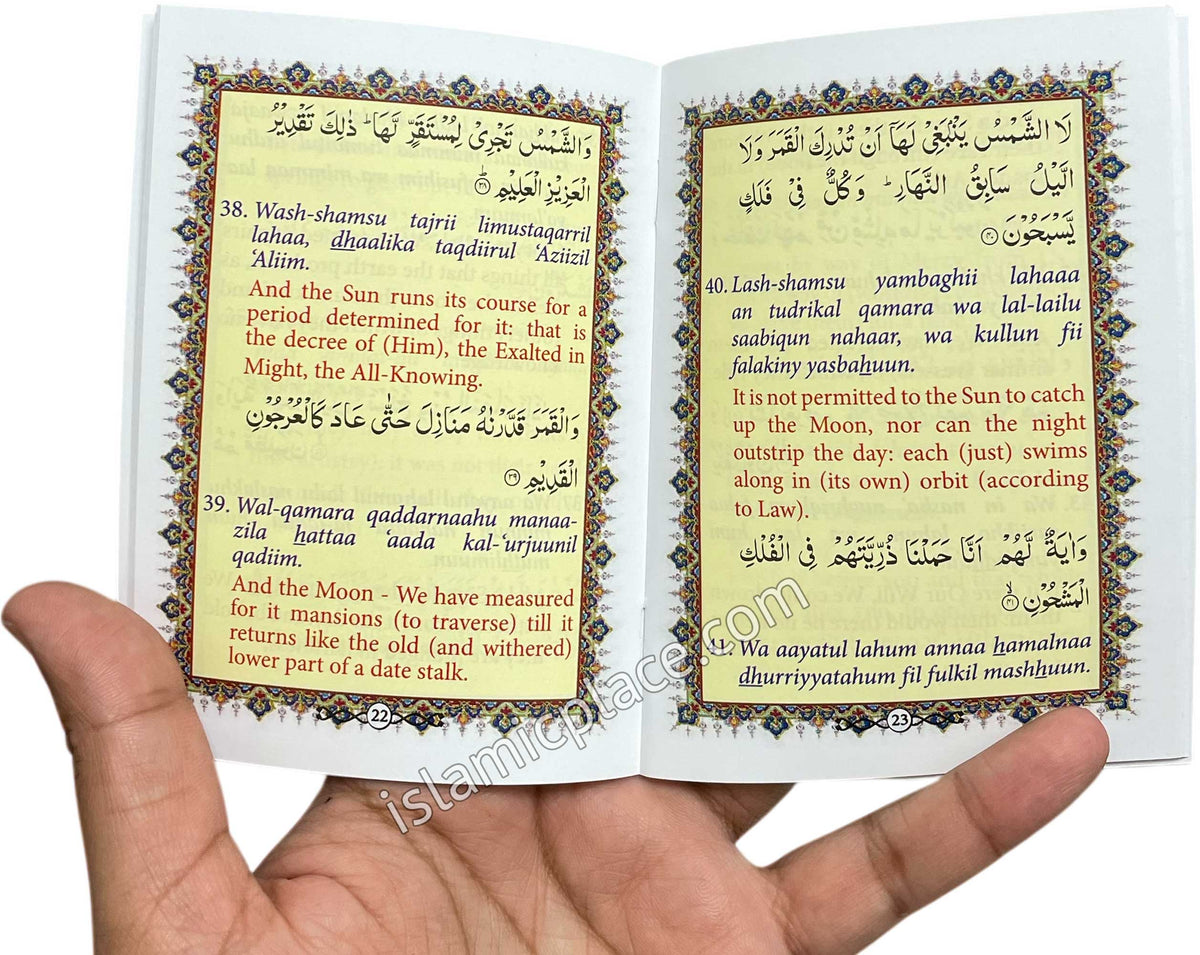 وَالشَّمْسُ تَجْرِىْ لِمُسْتَقَرٍّ لَّهَا ؕ ذٰلِكَ تَقْدِيْرُ
الْعَزِيْزِ الْعَلِيْمِ ؕ ﴿۳۸﴾
38. Wash-shamsu tajrii limustaqarril
lahaa, dhaalika taqdiirul ‘Aziizil
‘Aliim.
And the Sun runs its course for a
period determined for it: that is
the decree of (Him), the Exalted in
Might, the All-Knowing.
وَالْقَمَرَ قَدَّرْنٰهُ مَنَازِلَ حَتّٰى عَادَ كَالْعُرْجُوْنِ
الْقَدِيْمِ ﴿۳۹﴾
39. Wal-qamara qaddarnaahu manaa-
zila hattaa ‘aada kal-‘urjuunil
qadiim.
And the Moon - We have measured
for it mansions (to traverse) till it
returns like the old (and withered)
lower part of a date stalk.
22
لَا الشَّمْسُ يَنْۢبَغِىْ لَهَاۤ اَنْ تُدْرِكَ الْقَمَرَ وَلَا
الَّيْلُ سَابِقُ النَّهَارِ ؕ وَكُلٌّ فِىْ فَلَكٍ
يَّسْبَحُوْنَ ﴿۴۰﴾
40. Lash-shamsu yambaghii lahaaa
an tudrikal qamara wa lal-lailu
saabiqun nahaar, wa kullun fii
falakiny yasbahuun.
It is not permitted to the Sun to catch
up the Moon, nor can the night
outstrip the day: each (just) swims
along in (its own) orbit (according
to Law).
وَاٰيَةٌ لَّهُمْ اَنَّا حَمَلْنَا ذُرِّيَّتَهُمْ فِى الْفُلْكِ
الْمَشْحُوْنِ ۙ ﴿۴۱﴾
41. Wa aayatul lahum annaa hamalnaa
dhurriyyatahum fil fulkil mashhuun.
23
islamicplace.com